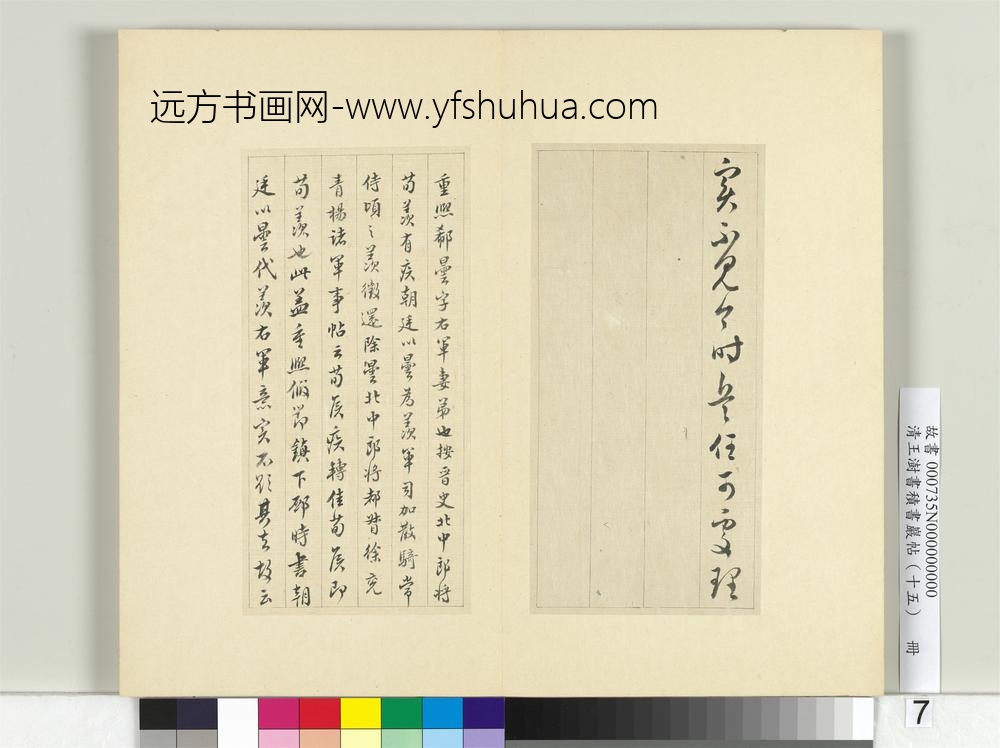 远方书画网-www.yfshuhua.com
实不见今时兵任可处理
重熙郗曇字右軍妻弟也按晉史北中郎将
荀羡有疾朝廷以曇為羡軍司加散騎常
侍頃之羡徵還除曇北中郎将都督徐兖
青揚諸軍事帖云荀侯疾轉佳荀侯即
荀羡也此盖重熙假節鎮下邳時書朝
廷以曇代羡右軍意实不欲其去故云
故書 000735N000000000
清王澍書積書巖帖(十五) 冊
7